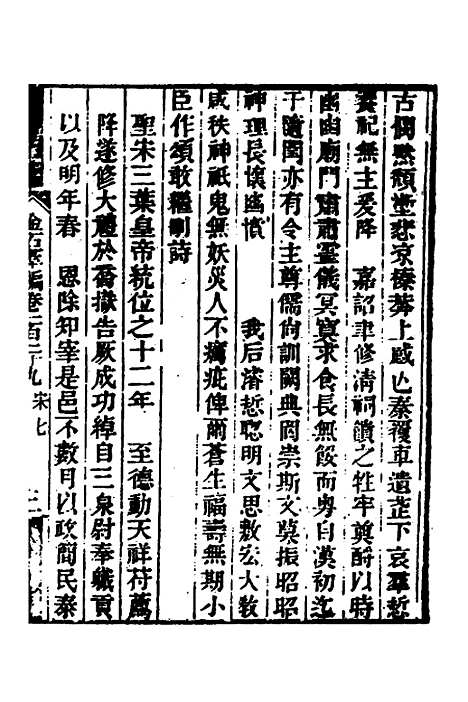 古悶然頹堂悲哀榛莽上感亾秦覆車遺葬下哀羣哲
養祀無主爰降　嘉詔聿修清祠饋之牲牢奠酹以時
幽幽廟門肅肅靈儀冥寞求食長無餒而粵自漢初迄
于隨閏亦有令主尊儒尚訓闕典罔崇斯文莫振昭昭
神理長懷幽憤　我后濬悊聰明文思敷宏大敎
咸秩神祇鬼無妖災人不癘疵俾爾蒼生福壽無期小
臣作頌敢繼剬詩
聖宋三葉皇帝統位之十二年　至德動天祥符薦
降遂修大禮於喬嶽告厥成功綽自三泉尉奉職貢
以及明年春　恩除知宰是邑不數月以政簡民泰
金石萃編卷一百二十九　宋七